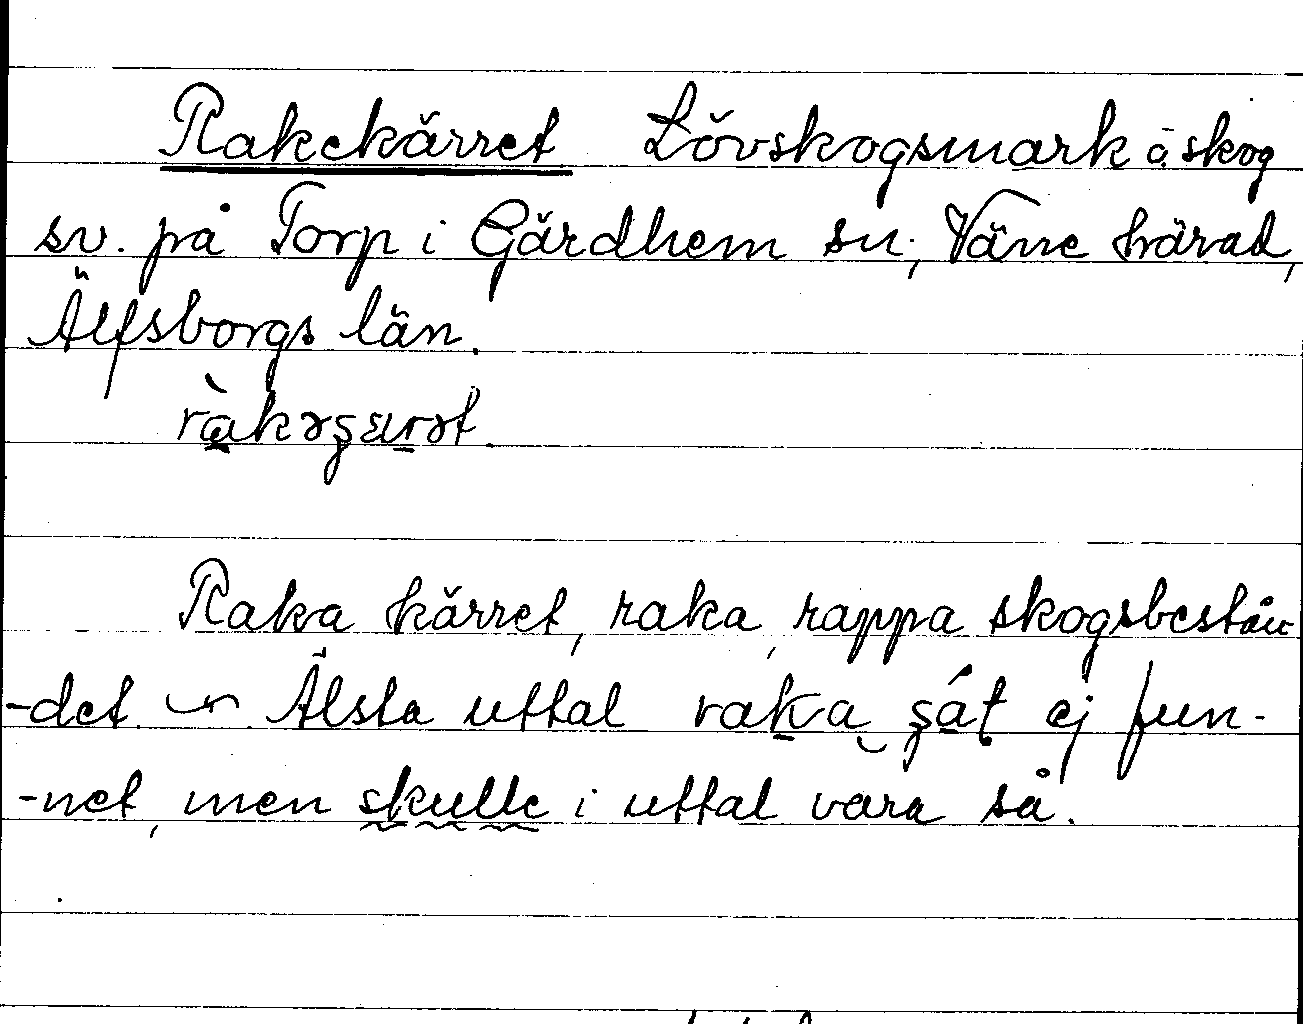 Rakekärret Lövskogsmark å skog
sv. på Torp i Gärdhem sn; Väne härad,
Älfsborgs län.
ràkəʂærət.
Raka kärret, raka, rappa skogsbestån
-det Älsta uttal raka ʂáț ej fun-
-net, men skulle i uttal vara så.